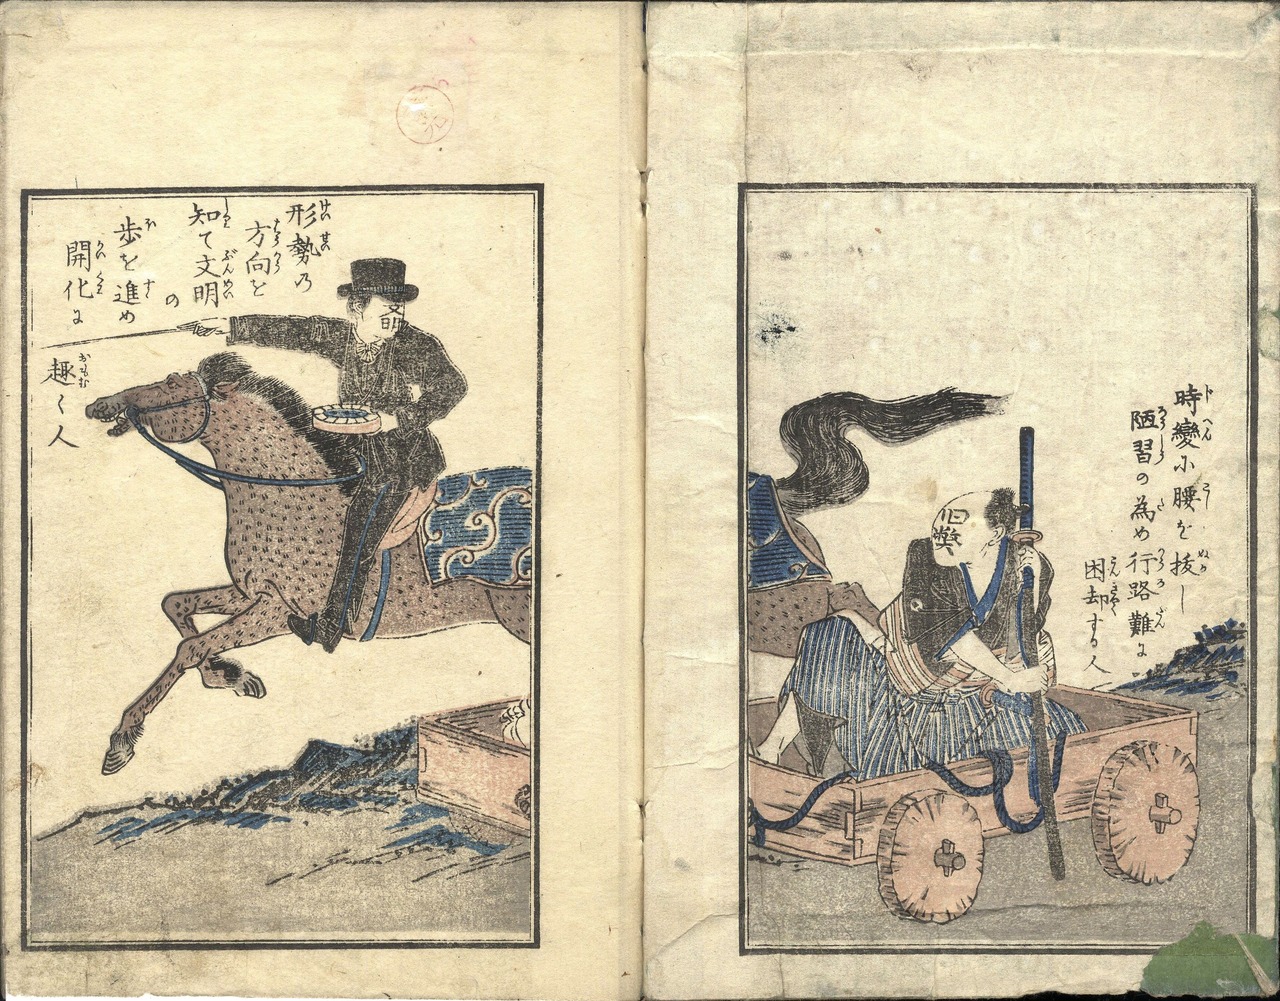 時變に腰を抜し
陋習の為め行路難に
困却する人
旧弊
形勢の
方向を
知て文明
の
歩を進め
開化に
趣く人
文明